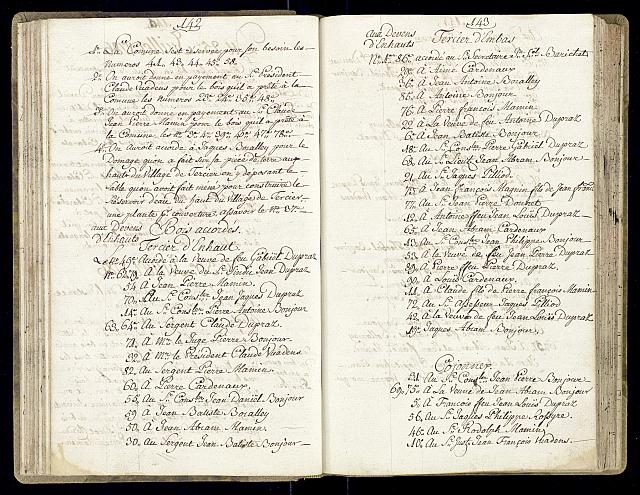 142
1.° La Comune s'est reservée pour son besoin les
numeros 42. 43. 44. 45. 58.
2.° On auroit donné en payement au Sr. President
Claude Vuadens pour le bois quil a prété à la
Comune les numeros 20.e 24.e 35.e 48.e
3.° On auroit donné en payement au Sr. Claude
Jean Pierre Mamin pour le bois quil a prété à
la Comune, les N.os 4.e 39.e 40.e 47.e 78.e
4.° On auroit acordé à Jaques Boralley pour le
Domage quon a fait sur sa piece de terre au
haut du Village de Tercier en y deposant le
sable quon avoit fait mener pour construire le
reservoir d'eau du haut du Village de Tercier,
une plante p.r couverture, assavoir le N.° 37.e
aux Devens
d'Enhauts
Bois acordés.
Tercier d'Enhaut
Le N.° 45.e Acordé à la Veuve de feu Gabriel Dupraz
A la Veuve du Sr. Jean Dupraz
54 A Jean Pierre Mamin
70. Au Sr. Const.er Jean Jaques Dupraz
14. Au Sr. Cons.er Pierre Antoine Bonjour
63. 64. Au Sergent Claude Dupraz
74. A Mr. le Juge Pierre Bonjour
92. A Mr. le President Claude Vuadens
82. Au Sergent Pierre Mamin
60. A Pierre Cardenaux
55. Au Sr. Cons.er Jean Daniel Bonjour
59. A Jean Batiste Boralley
50. A Jean Abram Mamin
30. Au Sergent Jean Batiste Bonjour
143
aux Devens
d'Enhauts
Tercier d'Embas
N.° 86.e acordé au Sr. Secretaire Barichet
A Aimé Cardenaux
36. A Jean Antoine Boralley
85. A Antoine Bonjour
76. A Pierre François Mamin
29. A la Veuve de feu Antoine Dupraz
6. A Jean Batiste Bonjour
18. Au Sr. Cons.er Pierre Gabriel Dupraz
68. Au Sr. Lieut. Jean Abram Bonjour
21. Au Sr. Jaques Pilliod
73. A Jean François Magnin fils de Jean François
77. Au Sr. Pierre Donnet
12. A Antoine ffeu Jean Louis Dupraz
65. A Jean Abram Cardenaux
13. Au Sr. Cons.er Jean Philippe Bonjour
53. A la Veuve de feu Jean Pierre Dupraz
A Pierre ffeu Pierre Dupraz
90. A Louis Cardenaux
91. A Claude fils de Pierre François Mamin
72. Au Sr. Assesseur Jaques Pilliod
42. A la Veuve de feu Jean Louis Dupraz
15. Jaques Abram Bonjour
Cojonner
21. Au Sr. Cons.er Jean Pierre Bonjour
69. 75. A la Veuve de Jean Abram Bonjour
5. A François ffeu Jean Louis Dupraz
56. Au Sr. Jaques Philippe Rossyre
46. Au Sr. Rodolph Mamin
10. Au Sr. Just. Jean François Vuadens